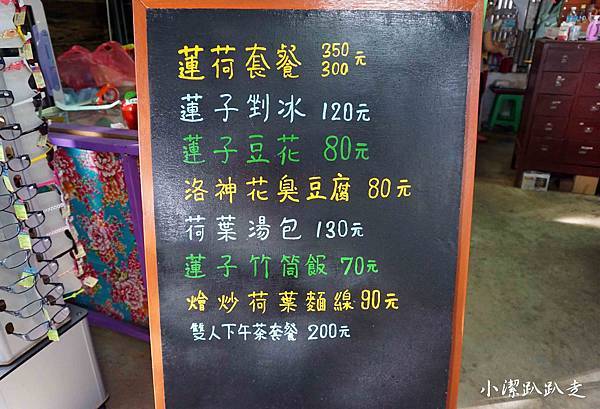 蓮荷套餐 350元
300
蓮子剉冰 120元
蓮子豆花 80元
洛神花臭豆腐 80元
荷葉湯包 130元
蓮子竹筒飯 70元
燴炒荷葉麵線 90元
雙人下午茶套餐 200元
小潔趴趴走